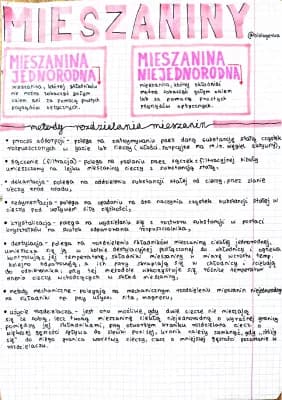 MIESZANINY
@biologerwa
MIESZANINA JEDNORODNA
mieszanina, której składników
nie można zobaczyć gołym
okiem ani za pomocą prostych
przyrządów optycznych.
MIESZANINA NIEJEDNORODNA
mieszanina, której składniki
można zobaczyć gołym okiem
lub za pomocą prostych
przyrządów optycznych.
metody rozdzielania mieszanin
• proces adsorpcji - polega na zatrzymywaniu przez daną substancję stałą cząstek
rozproszonych w gazie lub cieczy (węgiel aktywny).
• sączenie (filtracja) - polega na przelaniu przez sączek z filtracyjnej bibuły
umieszczony na lejku mieszaniny cieczy z substancją stałą;
• dekantacja - polega na oddzieleniu substancji stałej od cieczy, przez zlanie
cieczy znad osadu;
• sedymentacja - polega na opadaniu na dno naczynia cząstek substancji stałej w
cieczy pod wpływem siły ciężkości,
• krystalizacja - polega na wydzielaniu się z roztworu substancji w postaci
kryształów na skutek odparowania rozpuszczalnika,
• destylacja - polega na rozdzieleniu składników mieszaniny ciekłej jednorodnej,
umieszcza się ją w kolbie destylacyjnej podłączonej do chłodnicy i ogrzewa
kontrolując jej temperaturę, składniki mieszaniny w miarę wzrostu temp.
kolejno odparowują, a ich pary skraplają się w chłodnicy i ściekają
do odbieralnika, przy tej metodzie wykorzystuje się różnice temperatur
wrzenia cieczy wchodzących w skład mieszaniny,
• metody mechaniczne - polegają na mechanicznym rozdzieleniu mieszanin niejednorodnej
na składniki np. przy użyciu: sita, magnesu,
• użycie rozdzielacza - jest ono możliwe, gdy dwie ciecze nie mieszają
się ze sobą, lecz tworzą mieszaninę ciekłą niejednorodną o wyraźnej granicy
pomiędzy jej składnikami, przy otwartym kraniku rozdzielacza ciecz o
większej gęstości spływa do zlewki poniżej, kranik należy zamknąć, gdy
do niego granica warstwy cieczy, ciecz o mniejszej gęstości pozostanie w
rozdzielaczu.